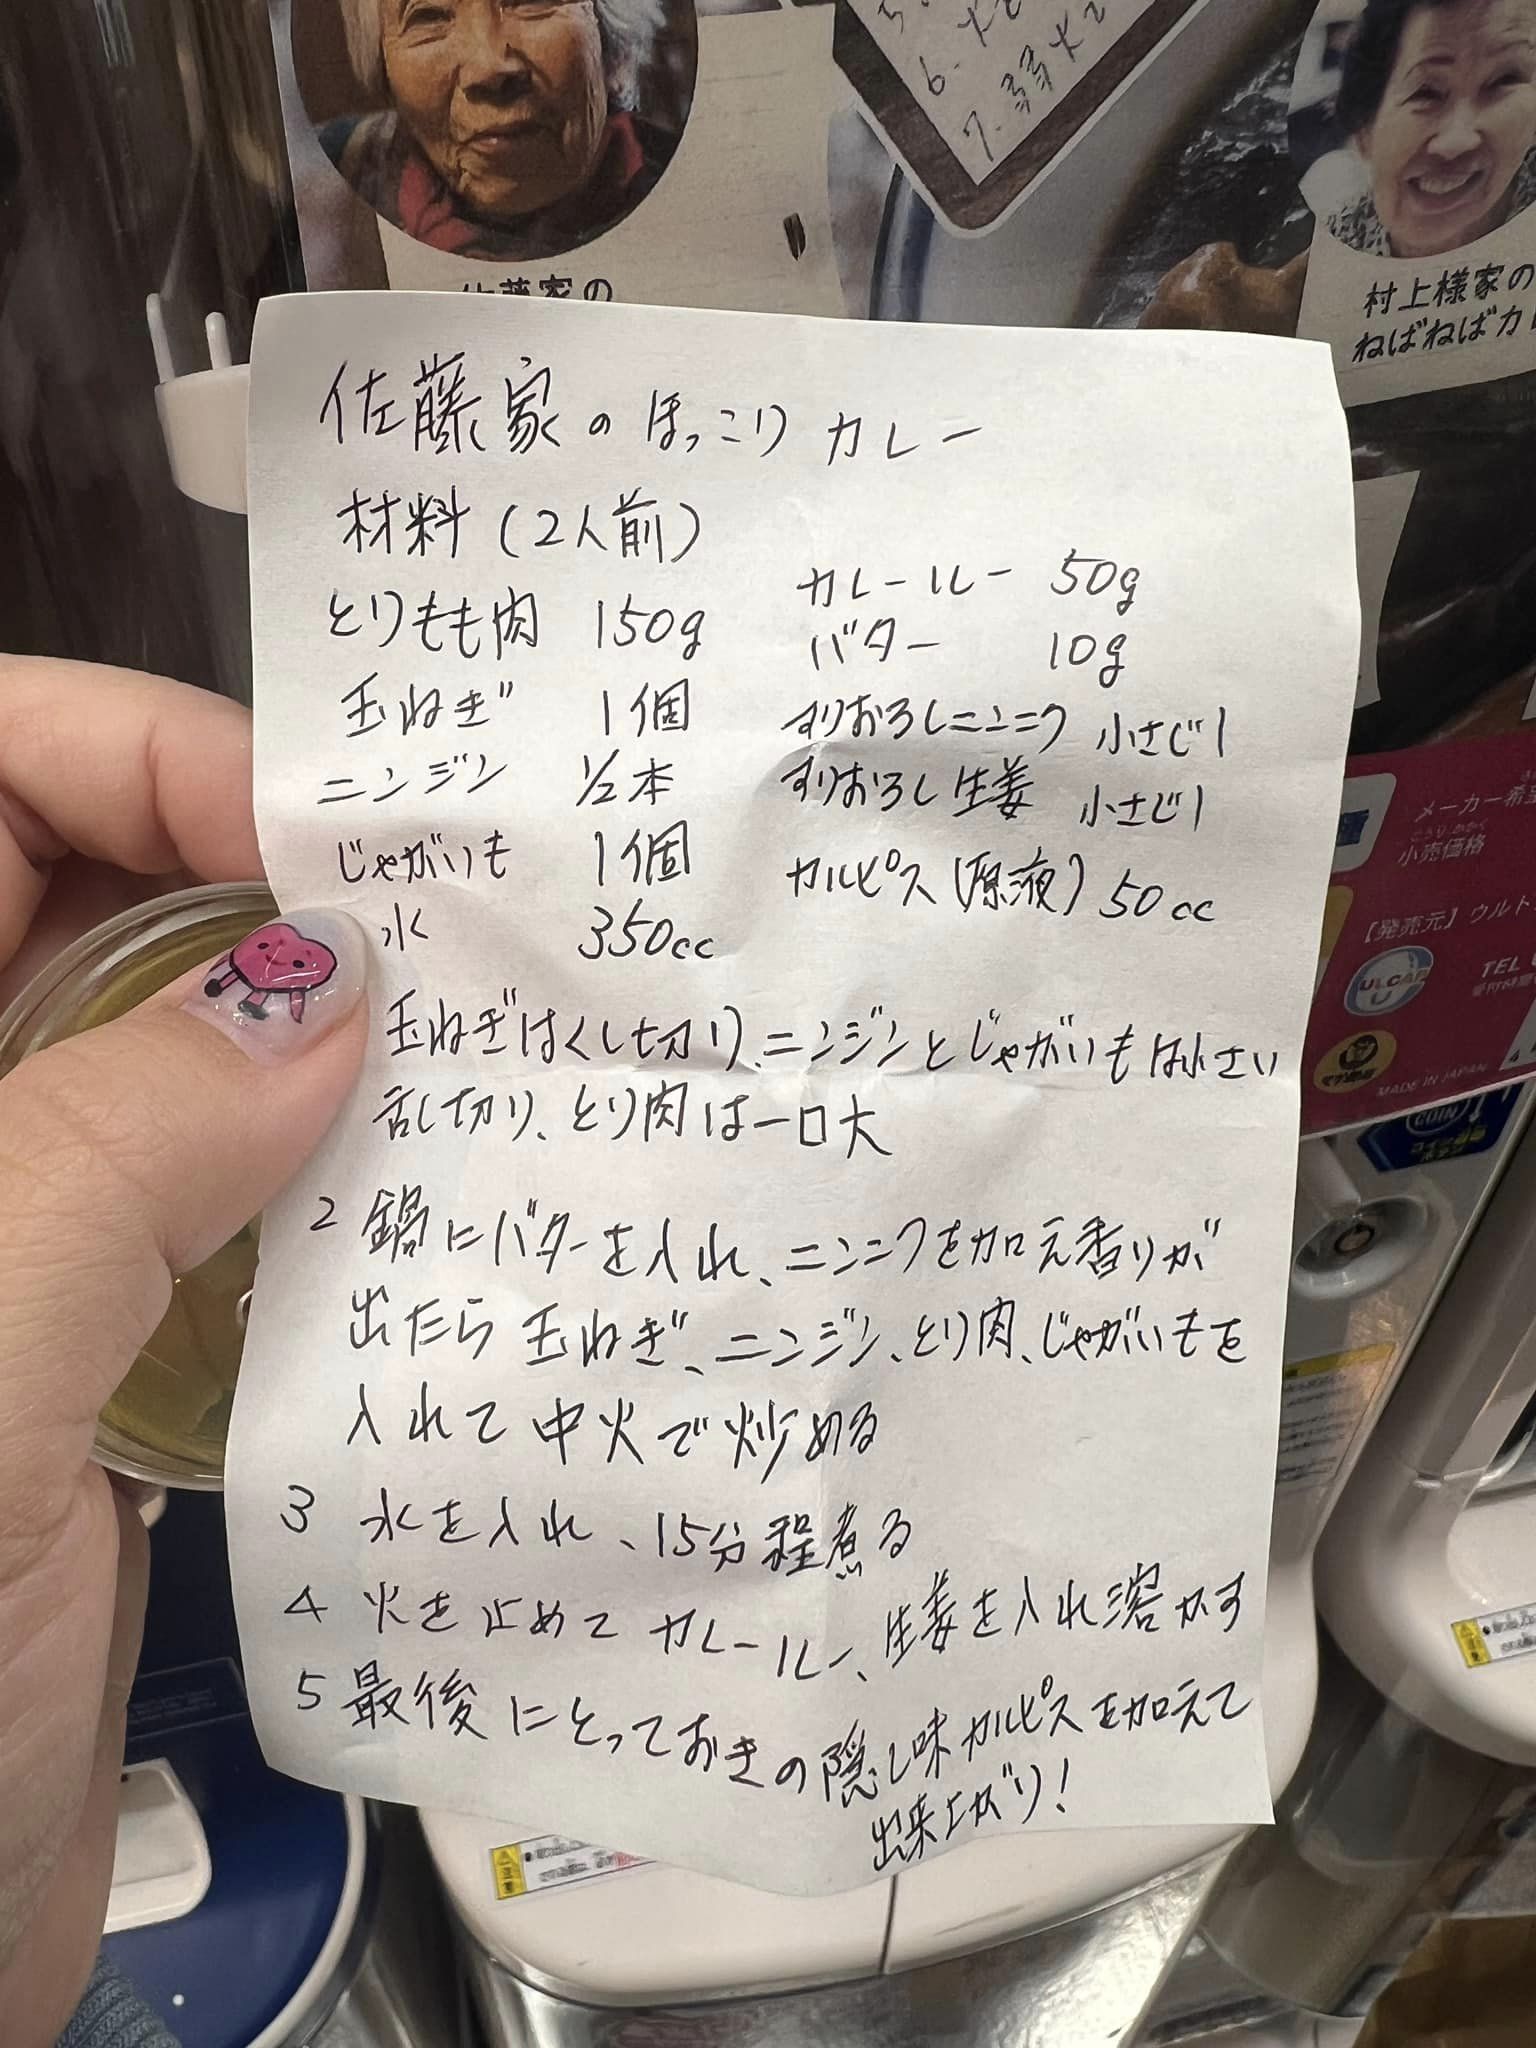 6.
7. 弱火
佐藤家の
村上様家の
ねばねばカ
佐藤家のほっこりカレー
材料(2人前)
とりもも肉 150g
玉ねぎ 1個
ニンジン 1/2本
じゃがいも 1個
水 350cc
カレールー 50g
バター 10g
すりおろしニンニク 小さじ1
すりおろし生姜 小さじ1
カルピス(原液) 50cc
玉ねぎはくし切り、ニンジンとじゃがいもは小さい
乱切り、とり肉は一口大
2 鍋にバターを入れ、ニンニクを加え香りが
出たら玉ねぎ、ニンジン、とり肉、じゃがいもを
入れて中火で炒める
3 水を入れ、15分程煮る
4 火を止めてカレールー、生姜を入れ溶かす
5 最後にとっておきの隠し味カルピスを加えて
出来上がり!
メーカー希
小売価格
【発売元】ウルト
ULCAP
TEL
MADE IN JAPAN
COIN